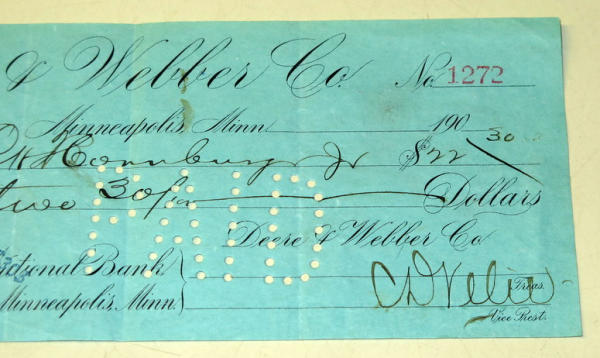 & Webber Co. No. 1272
Minneapolis, Minn. 190
Jr $22 30
two 30/100 Dollars
PAID
Deere & Webber Co.
National Bank
Minneapolis, Minn. C D Velie Treas.
Vice Prest.